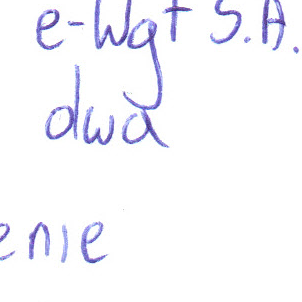 e-Wgt S.A.
dwa
enie